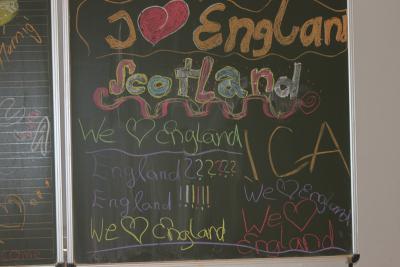 I ❤ England
Scotland
We ♡ England
England??????
England !!!!!
We ♡ England
ICA
We ♡ England
We ♡
England